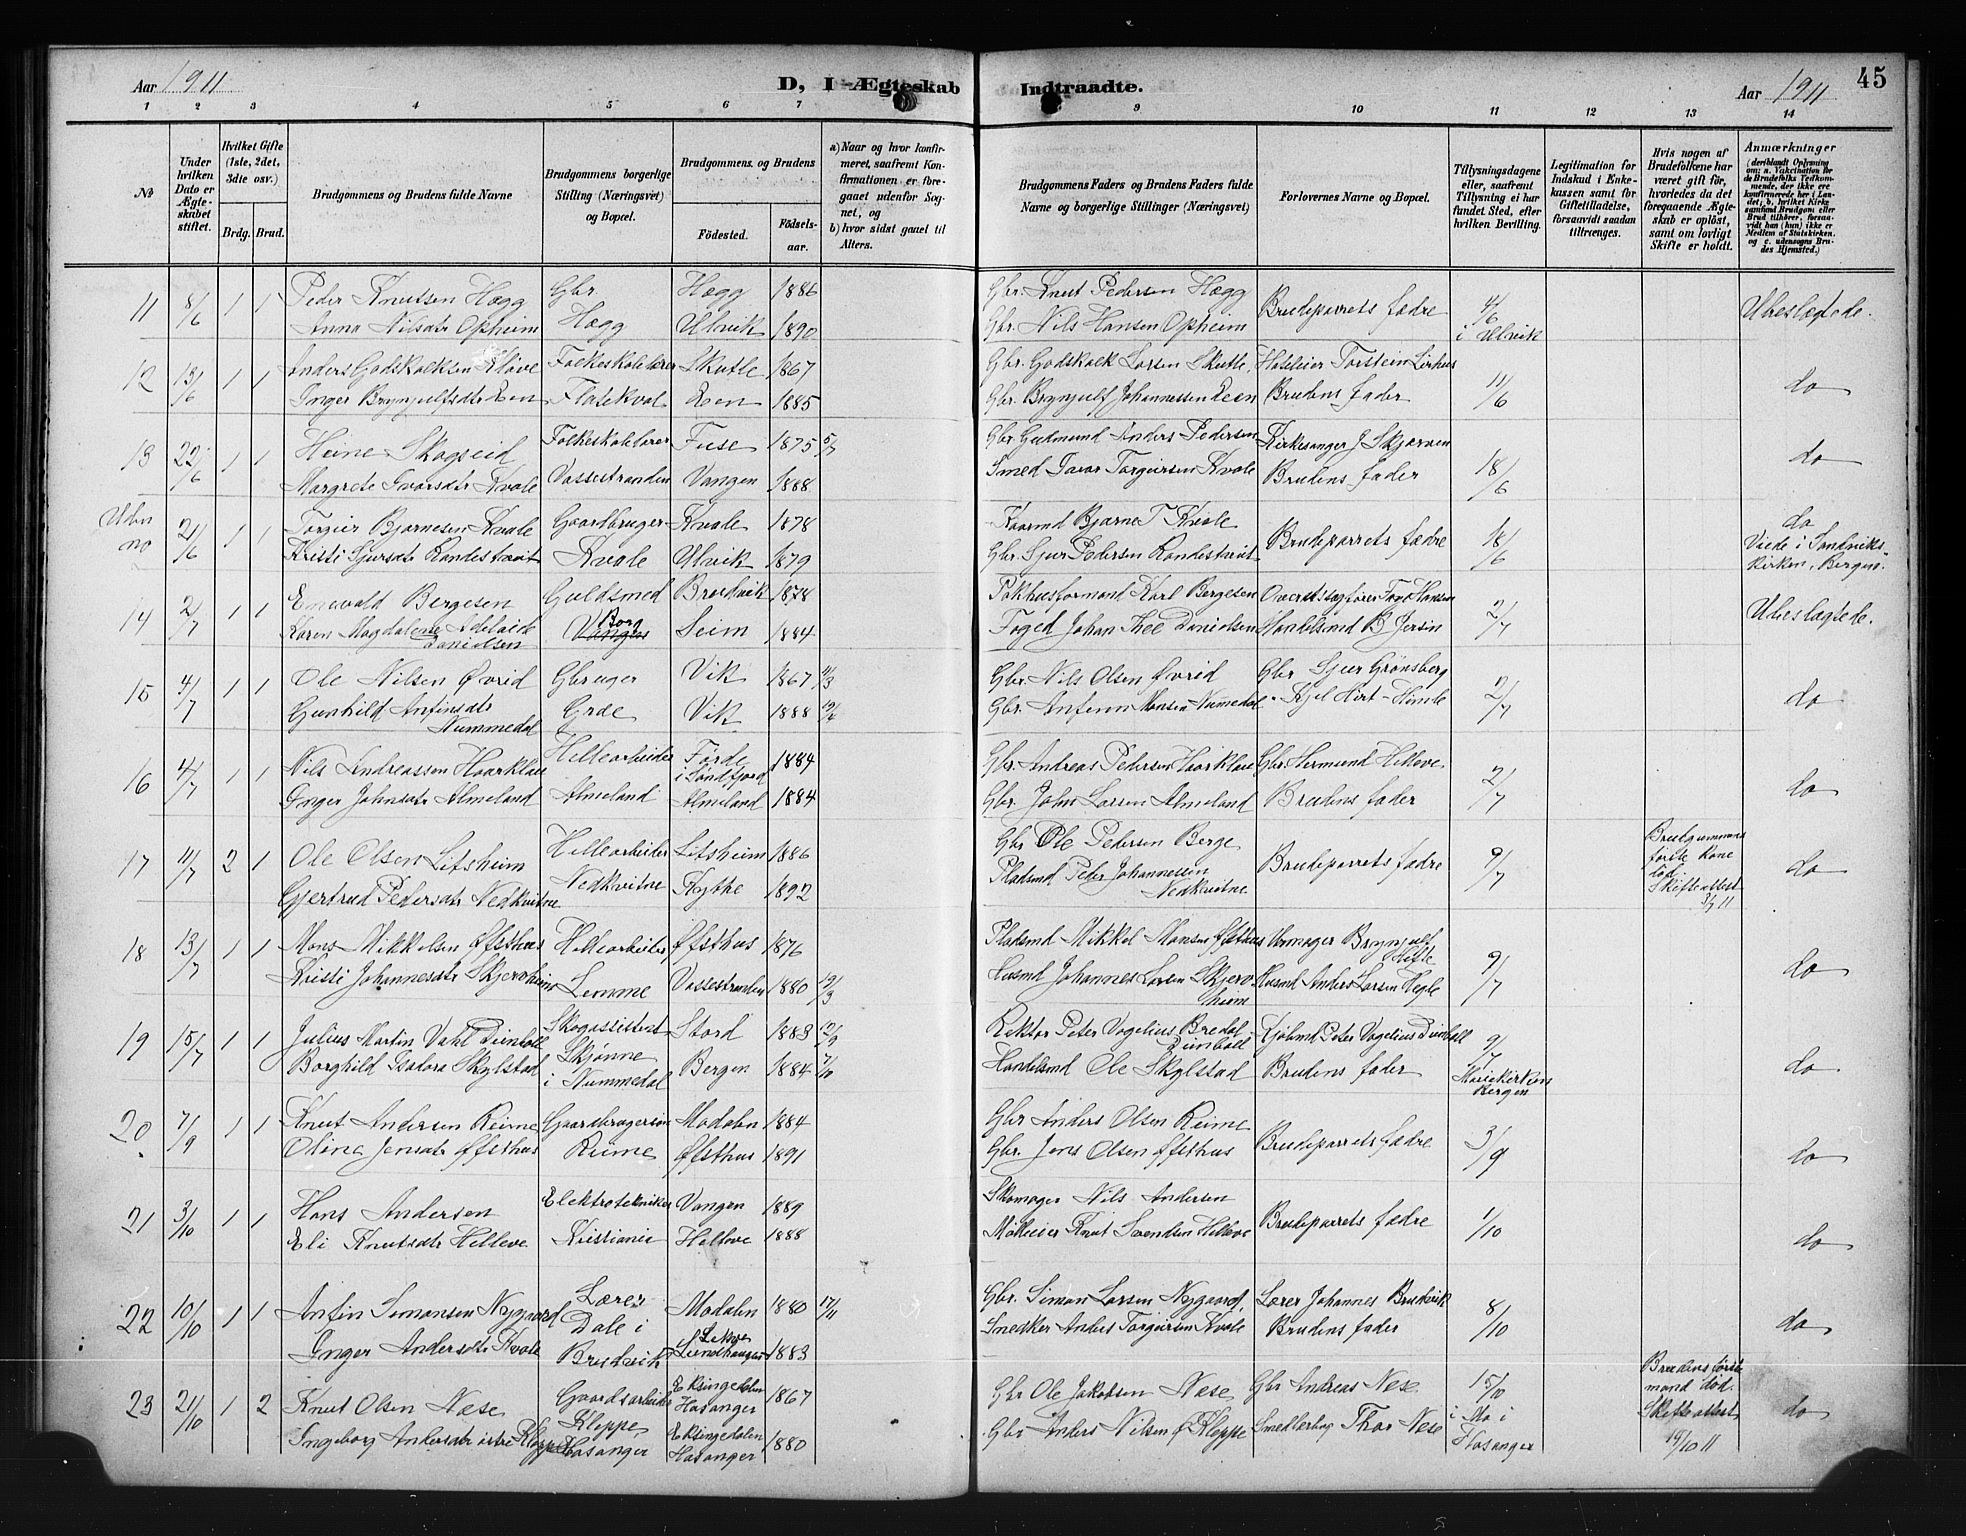 Aar 1911
D, I Ægteskab Indtraadte.
Aar 1911
45
1 2 3 4 5 6 7 9 10 11 12 13 14
No
Under hvilken Dato er Ægteskabet stiftet.
Hvilket Gifte (1ste, 2det, 3die osv.)
Brdg. Brud.
Brudgommens og Brudens fulde Navne
Brudgommens borgerlige Stilling (Næringsvei) og Bopæl.
Brudgommens og Brudens
Födested.
Födselsaar.
a) Naar og hvor konfirmeret, saafremt Konfirmationen er foregaaet udenfor Sognet, og
b) hvor sidst gaaet til Alters.
Brudgommens Faders og Brudens Faders fulde Navne og borgerlige Stillinger (Næringsvei)
Forlovernes Navne og Bopæl.
Tillysningsdagene eller, saafremt Tillysning ei har fundet Sted, efter hvilken Bevilling.
Legitimation for Indskud i Enkekassen samt for Giftetilladelse, forsaavidt saadan tiltrænges.
Hvis nogen af Brudefolkene har været gift för, hvorledes da det foregaaende Ægteskab er oplöst, samt om lovligt Skifte er holdt.
Anmærkninger
11 8/6 1 1 Peder Knutsen Hægg Gbr. Hægg 1886 Gbr. Knut Pedersen Hægg Brudeparrets fædre 4/6 Ubeslægtede.
Anna Nilsdtr Opheim Hægg Ulvik 1890 Gbr. Nils Hansen Opheim i Ulvik
12 13/6 1 1 Anders Godskalksen Kløve Folkeskolelærer Skutle 1867 Gbr. Godskalk Larsen Skutle, Hoteleier Torstein Lirhus 11/6 do
Inger Brynjulfsdtr Een Flatekval Een 1885 Gbr. Brynjulf Johannessen Eeen Brudens fader
13 22/6 1 1 Heine Skogseid Folkeskolelærer Fuse 1875 5/7 Gbr Gudmund Anders Pedersen Kirkesanger J Skjerven 18/6 do
Margrete Ivarsdtr Kvale Vossestranden Vangen 1888 Smed Ivar Torgeirsen Kvale Brudens fader
Uden no 21/6 1 1 Torgier Bjarnesen Kvale Gaardbruger Kvale 1878 Kaarmd Bjarne T Kvale Brudeparrets fædre 18/6 do
Kristi Sjursdtr Randestveit Kvale Ulvik 1879 Gbr. Sjur Pedersen Randestveit Viede i Sandvikskirken, Bergen.
14 2/7 1 1 Enevald Bergesen Guldsmed Bruvik 1878 Pakhusformand Karl Bergesen 2/7 Ubeslægtede.
Karen Magdalene Adelaide Danielsen Borg Vangen Seim 1884 Foged Johan Thee Danielsen Handelsmd B Jersin
15 4/7 1 1 Ole Nilsen Øvrid Gbruger Vik 1867 Gbr. Nils Olsen Øvrid Gbr Sjur Grønsberg 2/7 do
Gunhild Anfinsdtr Nummedal Grde Vik 1888 Gbr. Anfinn Monsen Nummedal
16 4/7 1 1 Nils Andreassen Haarklau Hellearbeider Førde i Søndfjord 1884 Gbr. Andreas Pedersen Haarklau Gbr. Hermund Helleve 2/7 do
Inger Johnsdtr Almeland Almeland Almeland 1884 Gbr. John Larsen Almeland Brudens fader
17 11/7 2 1 Ole Olsen Litsheim Hellearbeider Litsheim 1886 Gbr Ole Pedersen Berge Brudeparrets fædre 9/7 Brudgummens første kone død. Skifteattest 3/7 11 do
Gjertrud Pedersdtr Nedkvitne Nedkvitne Flythe 1892 Pladsmd Peder Johannessen Nedkvitne
18 13/7 1 1 Mons Mikkelsen Øfsthus Hellearbeider Øfsthus 1876 Pladsmd Mikkel Monsen Øfsthus Brynjulf 9/7 do
Kristi Johannesdtr Skjerveheim Lemme Vossestranden 1880 Husmd Johannes Larsen Skjerveheim Husmd Anders Larsen Hegle
19 15/7 1 1 Julius Martin Vahl Duntoll Skogassistent Stord 1883 12/9 Rektor Peter Vogelius Bredal 9/7 do
Borghild Isadora Skylstad Skjønne i Nummedal Bergen 1884 7/10 Handelsmd Ole Skylstad Brudens fader Mariekirken Bergen
20 7/9 1 1 Knut Andersen Reime Gaardbrugersøn Modalen 1884 Gbr Anders Olsen Reime Brudeparrets fædre 3/9 do
Oline Jensdtr Øfsthus Reime Øfsthus 1891 Gbr. Jens Olsen Øfsthus
21 3/10 1 1 Hans Andersen Elektrotekniker Vangen 1889 Skomager Nils Andersen Brudeparrets fædre 1/10 do
Eli Knutsdtr Helleve Kristiania Helleve 1888 Mølleeier Knut Svendsen Helleve
22 10/10 1 1 Anfin Simonsen Nygaard Lærer Modalen 1880 17/11 Gbr. Simon Larsen Nygaard, Lærer Johannes Brudvik 8/10 do
Inger Andersdtr Kvale Dale i Bruvik Lekve 1883 Snedker Anders Torgeirsen Kvale Brudens fader
23 21/10 1 2 Knut Olsen Næse Gaardsarbeider Eksingedalen Hosanger 1867 Gbr Ole Jakobsen Næse Gbr Andreas Nese 15/10 i Mo i Hosanger Brudens første mand død. Skifteattest 19/10 11 do
Ingeborg Andersdtr Kloppe Hosanger Eksingedalen Hosanger 1880 Gbr Anders Nilsen Ø Kleppe Thor Nese